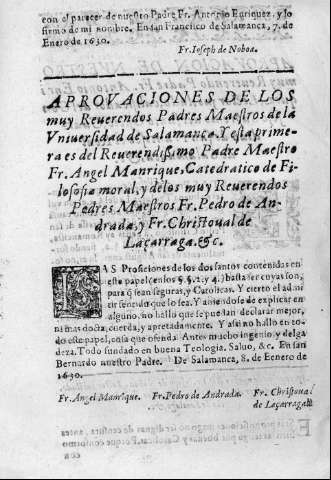 con el parecer de nuestro Padre Fr. Antonio Enriquez, y lo
firmo de mi nombre. En san Francisco de Salamanca, 7. de
Enero de 1630.
Fr. Ioseph de Noboa.
APROVACIONES DE LOS
muy Reuerendos Padres Maestros de la
Vniuersidad de Salamanca. Y esta prime-
ra es del Reuerendissimo Padre Maestro
Fr. Angel Manrique, Catedratico de Fi-
losofia moral, y de los muy Reuerendos
Pedres Maestros Fr. Pedro de An-
drada, y Fr. Christoual de
Laçarraga. &c.
LAS Proseciones de los dos santos contenidas en
este papel (en los §§. 2. y 4.) hasta ser cuyas son,
para q̃ sean seguras, y Catolicas. Y cierto el admi
tir sentido que lo sea. Y auiendose de explicar en
alguno, no hallo que se puedan declarar mejor,
ni mas docta, cuerda, y apretadamente. Y assi no hallo en to-
do este papel, cosa que ofenda. Antes mucho ingenio, y delga
deza. Todo fundado en buena Teologia. Saluo, &c. En san
Bernardo nuestro Padre. De Salamanca, 8. de Eenero de
1630.
Fr. Angel Manrique. Fr. Pedro de Andrada. Fr. Christoual
de Laçarraga.